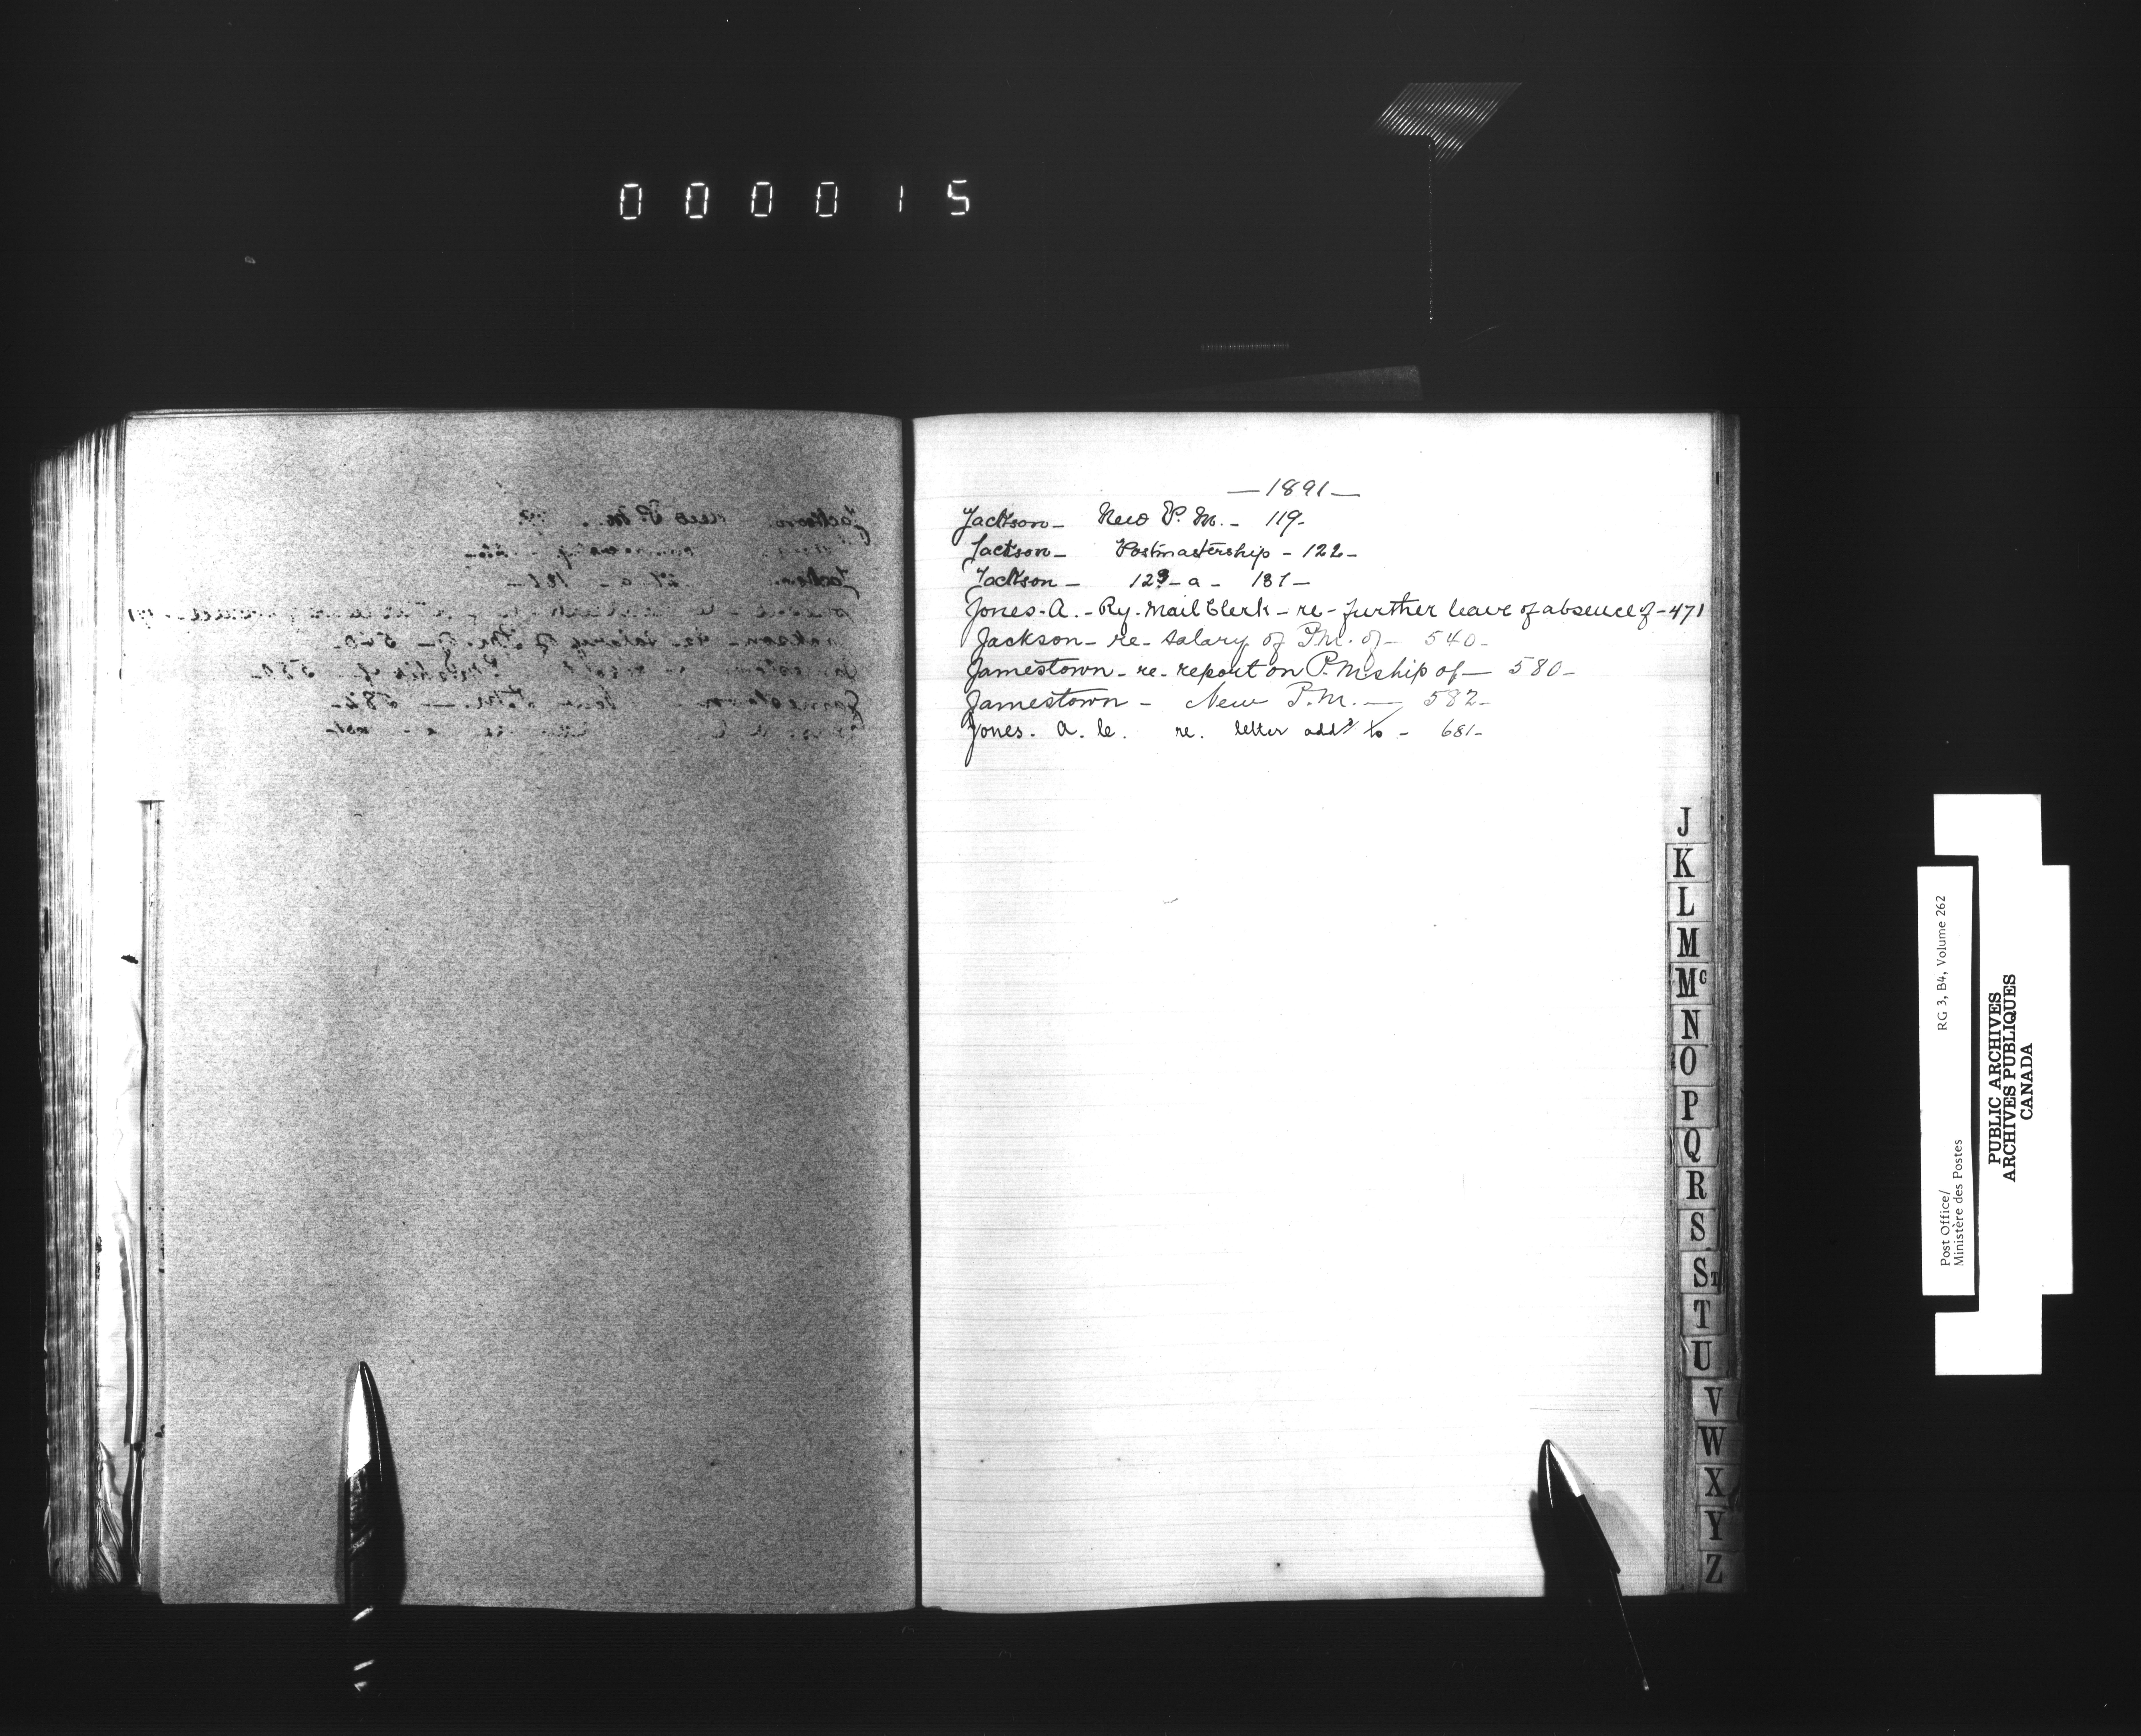 000015
—1891—
Jackson— New P. M. — 119—
Jackson— Postmastership — 122—
Jackson — 123—a — 181—
Jones. A. — Ry. Mail Clerk — re — further leave of absence of — 471
Jackson — re — salary of P.M. of — 540—
Jamestown — re — report on P.Mship of — 580—
Jamestown — New P.M. — 582—
Jones. A. C. re. letter addd to — 681—
J
K
L
M
Mc
N
O
P
Q
R
S
ST
T
U
V
W
X
Y
Z
Post Office/ RG 3, B4, Volume 262
Ministère des Postes
PUBLIC ARCHIVES
ARCHIVES PUBLIQUES
CANADA